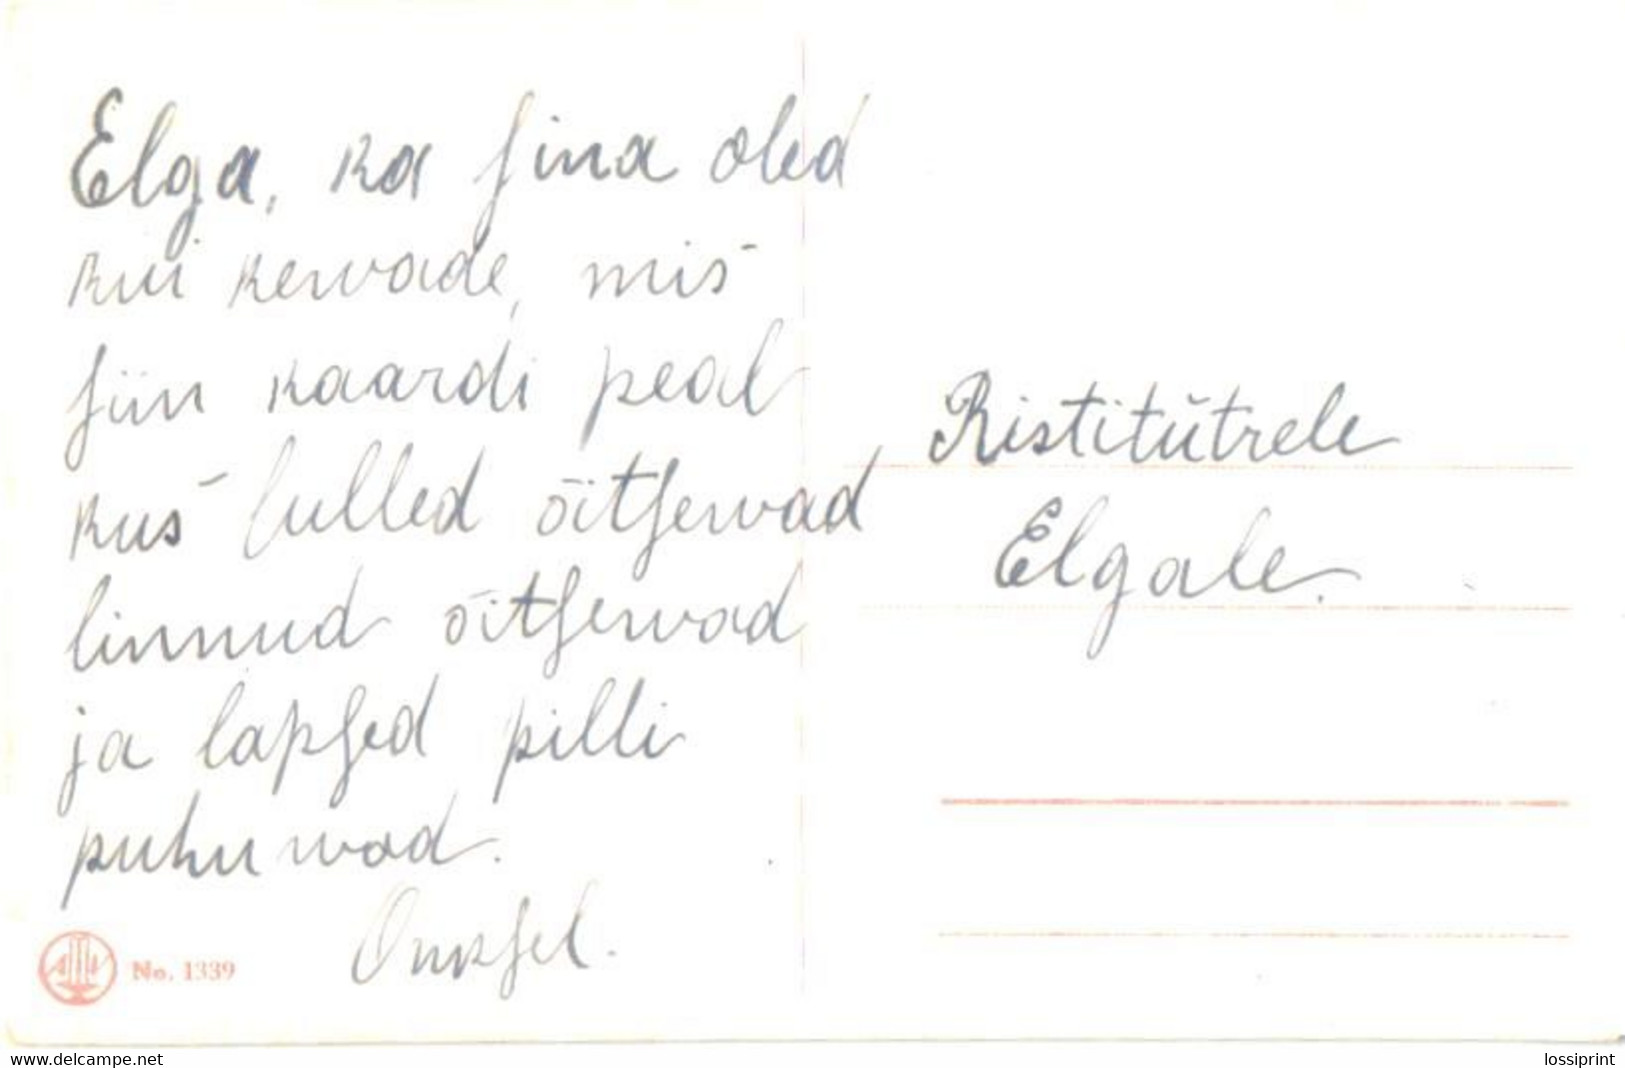 Elga, ka ſina oled
kui kewade, mis
ſiin kaardi peal
kus lilled õitſewad
linnud õitſewad
ja lapſed pilli
puhuwad.
Onkſel.
No. 1339
Ristitütrele
Elgale.
www.delcampe.net
lossiprint